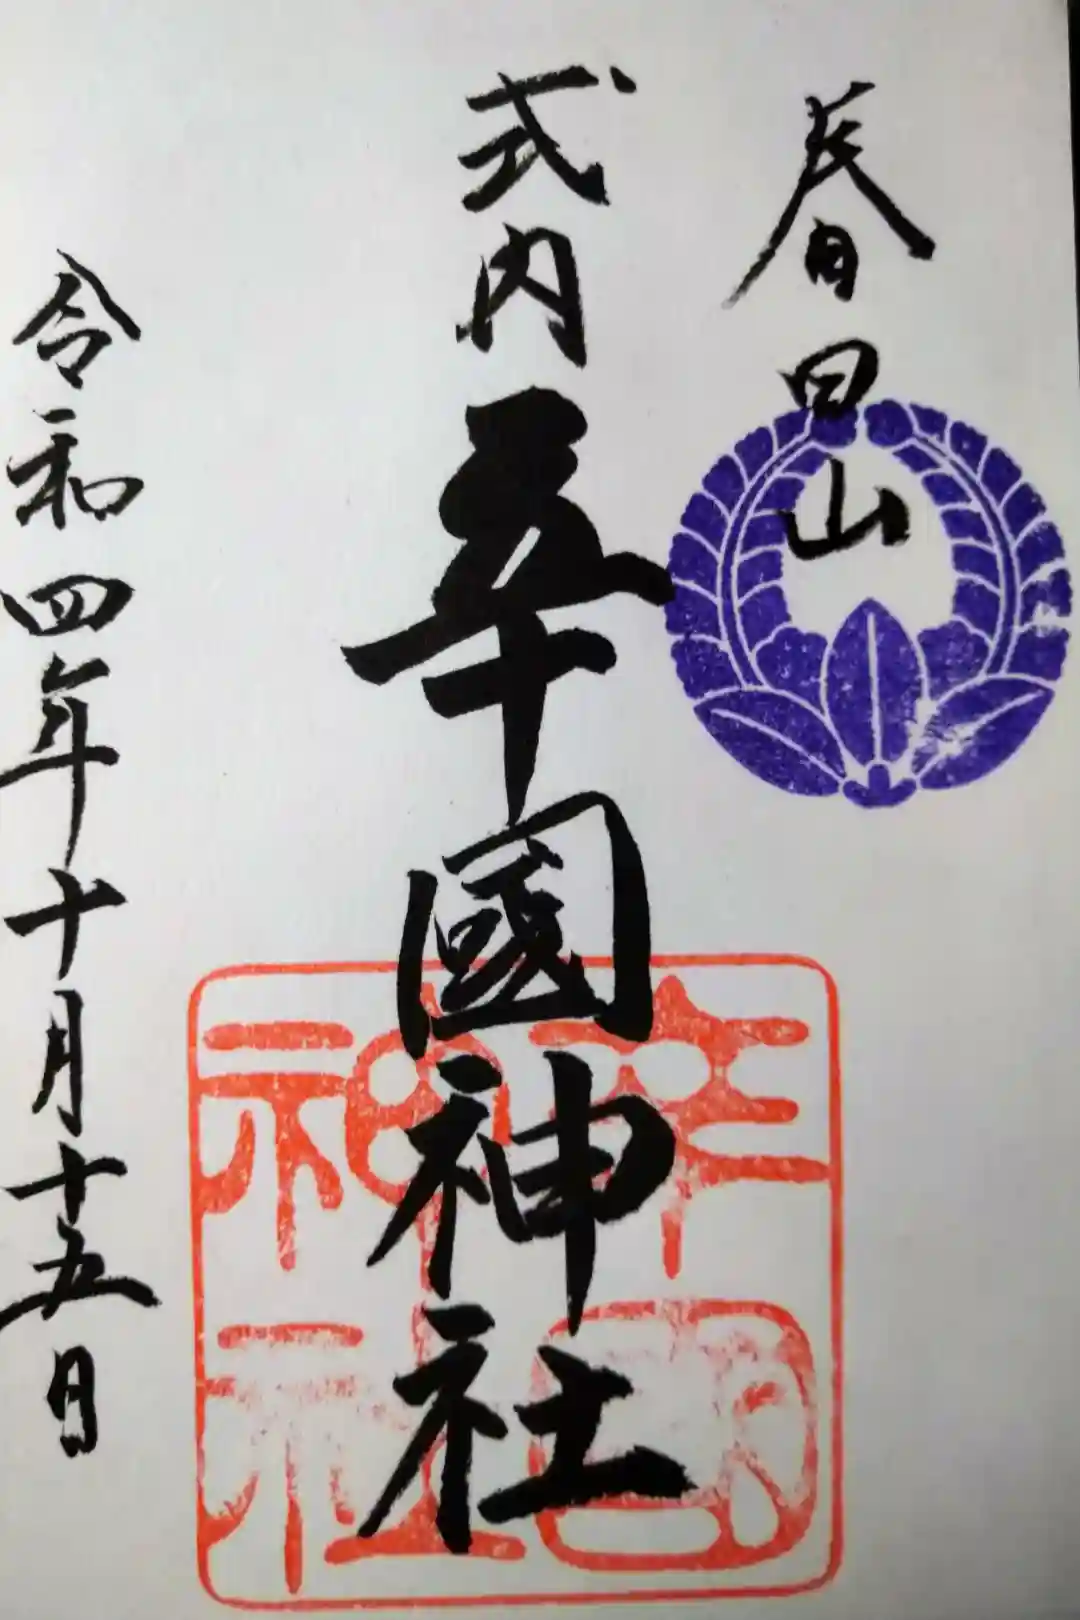 春日山
式内 辛國神社
令和四年十月十五日
辛國
神社